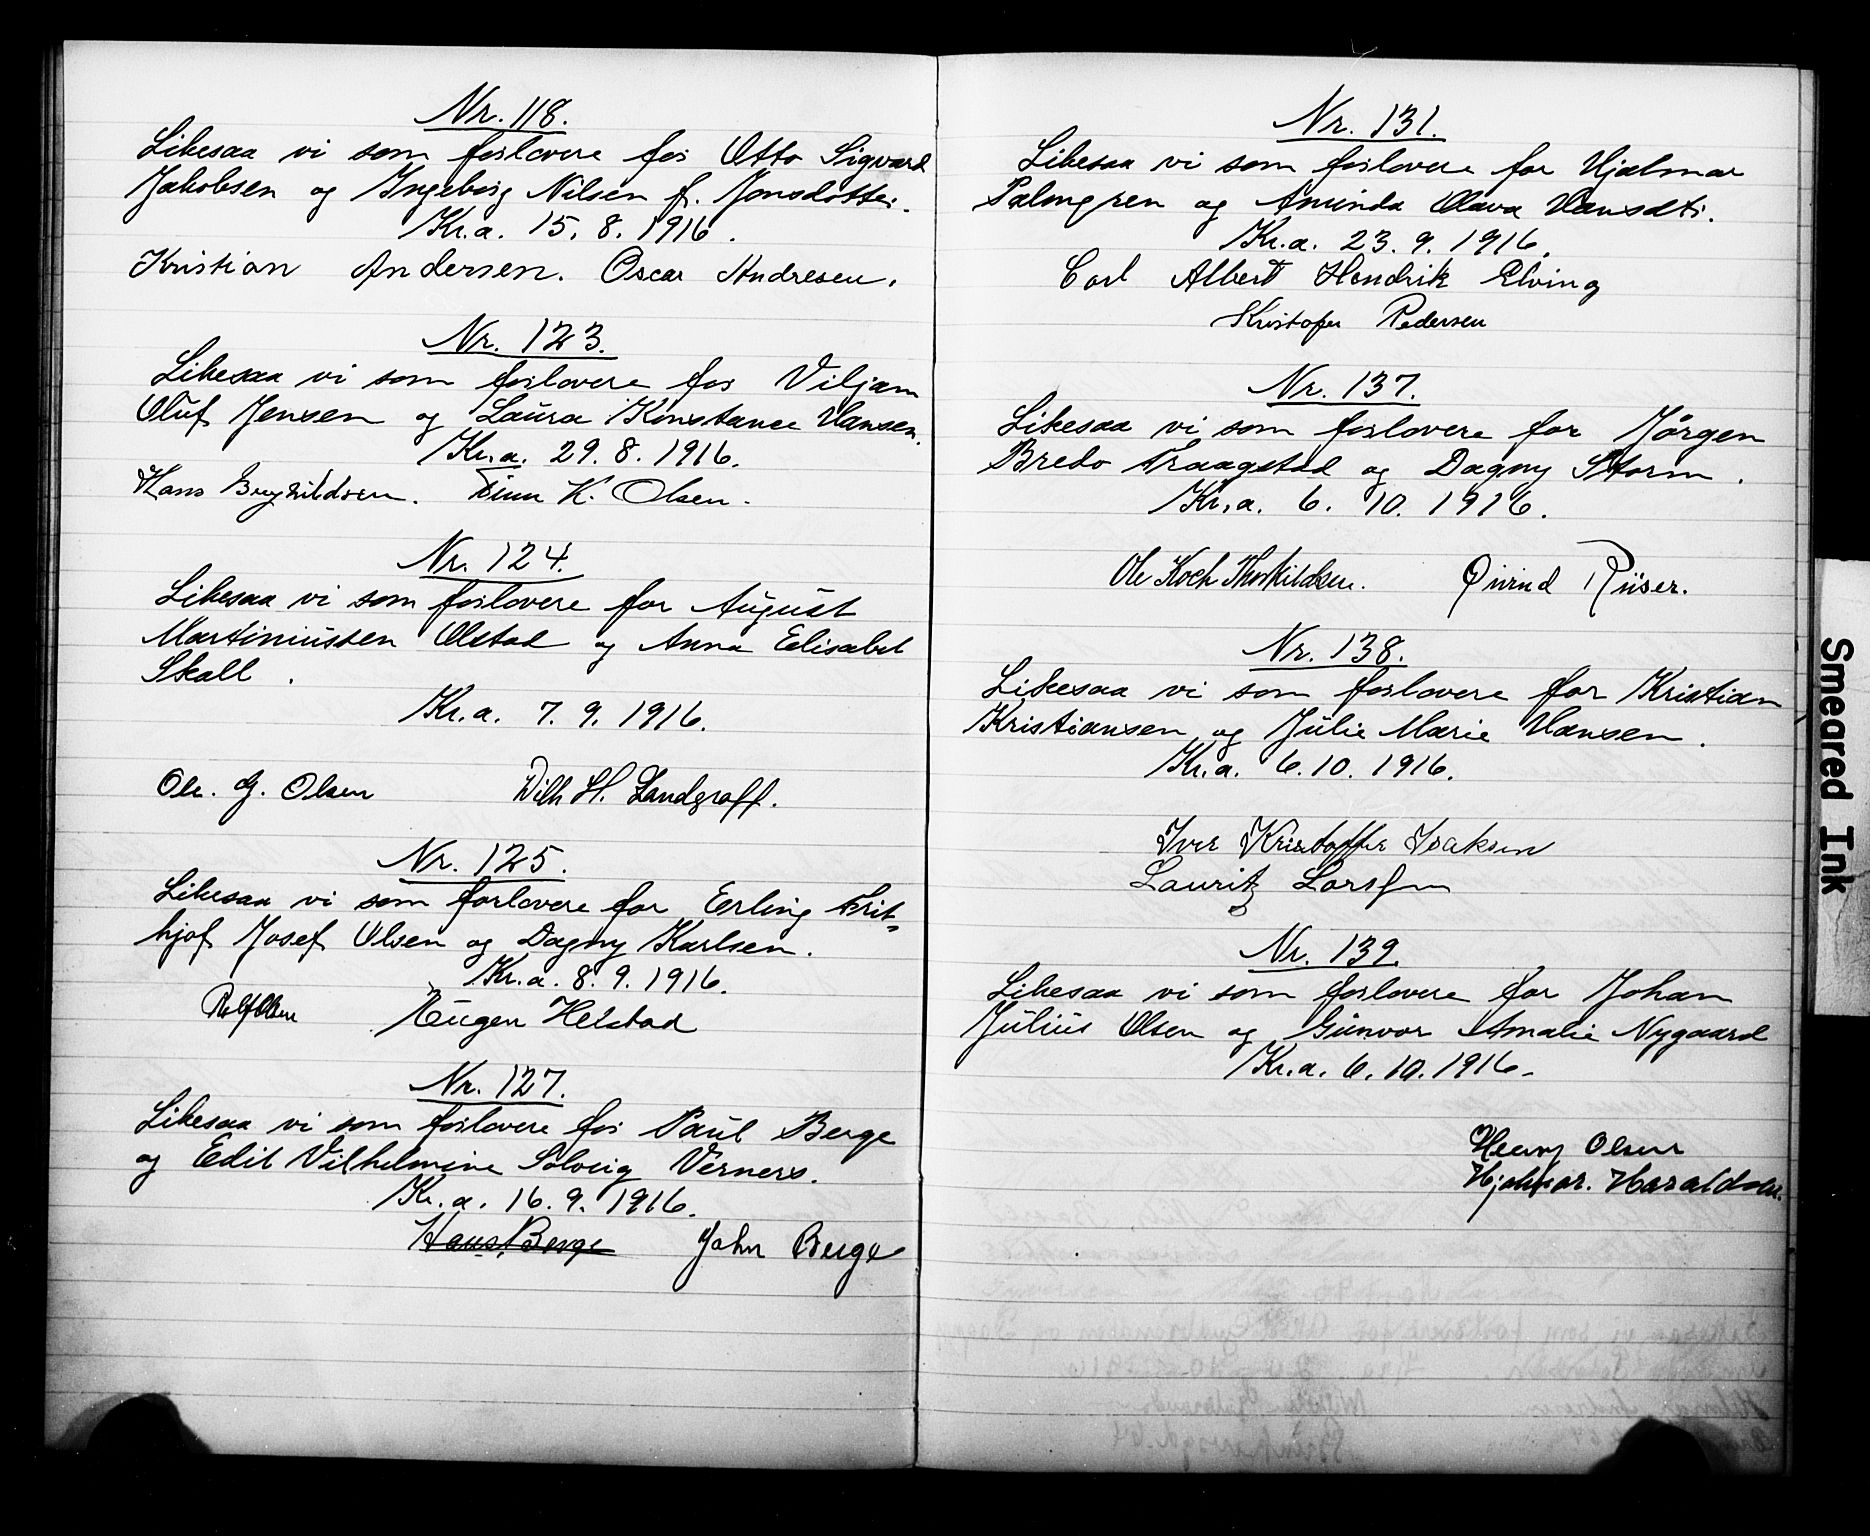 Nr. 118.
Likesaa vi som forlovere for Otto Sigvard
Jakobsen og Ingeborg Nilsen f. Jonsdotter.
Kr.a. 15. 8. 1916.
Kristian Andersen. Oscar Andresen.
Nr. 123.
Likesaa vi som forlovere for Viljam
Oluf Jensen og Laura Konstance Hansen.
Kr.a. 29. 8. 1916.
Hans Finn K. Olsen.
Nr. 124.
Likesaa vi som forlovere for August
Martiniussen Olstad og Anna Elisabet
Skall.
Kr.a. 7. 9. 1916.
Ole. G. Olsen Wilh H. Landgraff.
Nr. 125.
Likesaa vi som forlovere for Erling Frit-
hjof Josef Olsen og Dagny Karlsen.
Kr.a. 8. 9. 1916.
Rolf Olsen Eugen Helstad
Nr. 127.
Likesaa vi som forlovere for Paul Berge
og Edit Vilhelmine Solveig Verners.
Kr.a. 16. 9. 1916.
Hans Berge John Berge
Nr. 131.
Likesaa vi som forlovere for Hjalmar
Palmgren og Aminda Olava Hansdtr.
Kr.a. 23. 9. 1916.
Carl Albert Hendrik Elving
Kristofer Pedersen
Nr. 137.
Likesaa vi som forlovere for Jørgen
Bredo Fraagstad og Dagny Storm.
Kr.a. 6. 10. 1916.
Ole Koch Thorkildsen. Øivind Riiser.
Nr. 138.
Likesaa vi som forlovere for Kristian
Kristiansen og Julie Marie Hansen.
Kr.a. 6. 10. 1916.
Iver Kristoffer Isaksen
Lauritz Larsen
Nr. 139.
Likesaa vi som forlovere for Johan
Julius Olsen og Gunvor Amalie Nygaard
Kr.a. 6. 10. 1916.
Henry Olsen
Hjalmar. Haraldsen.
Smeared Ink